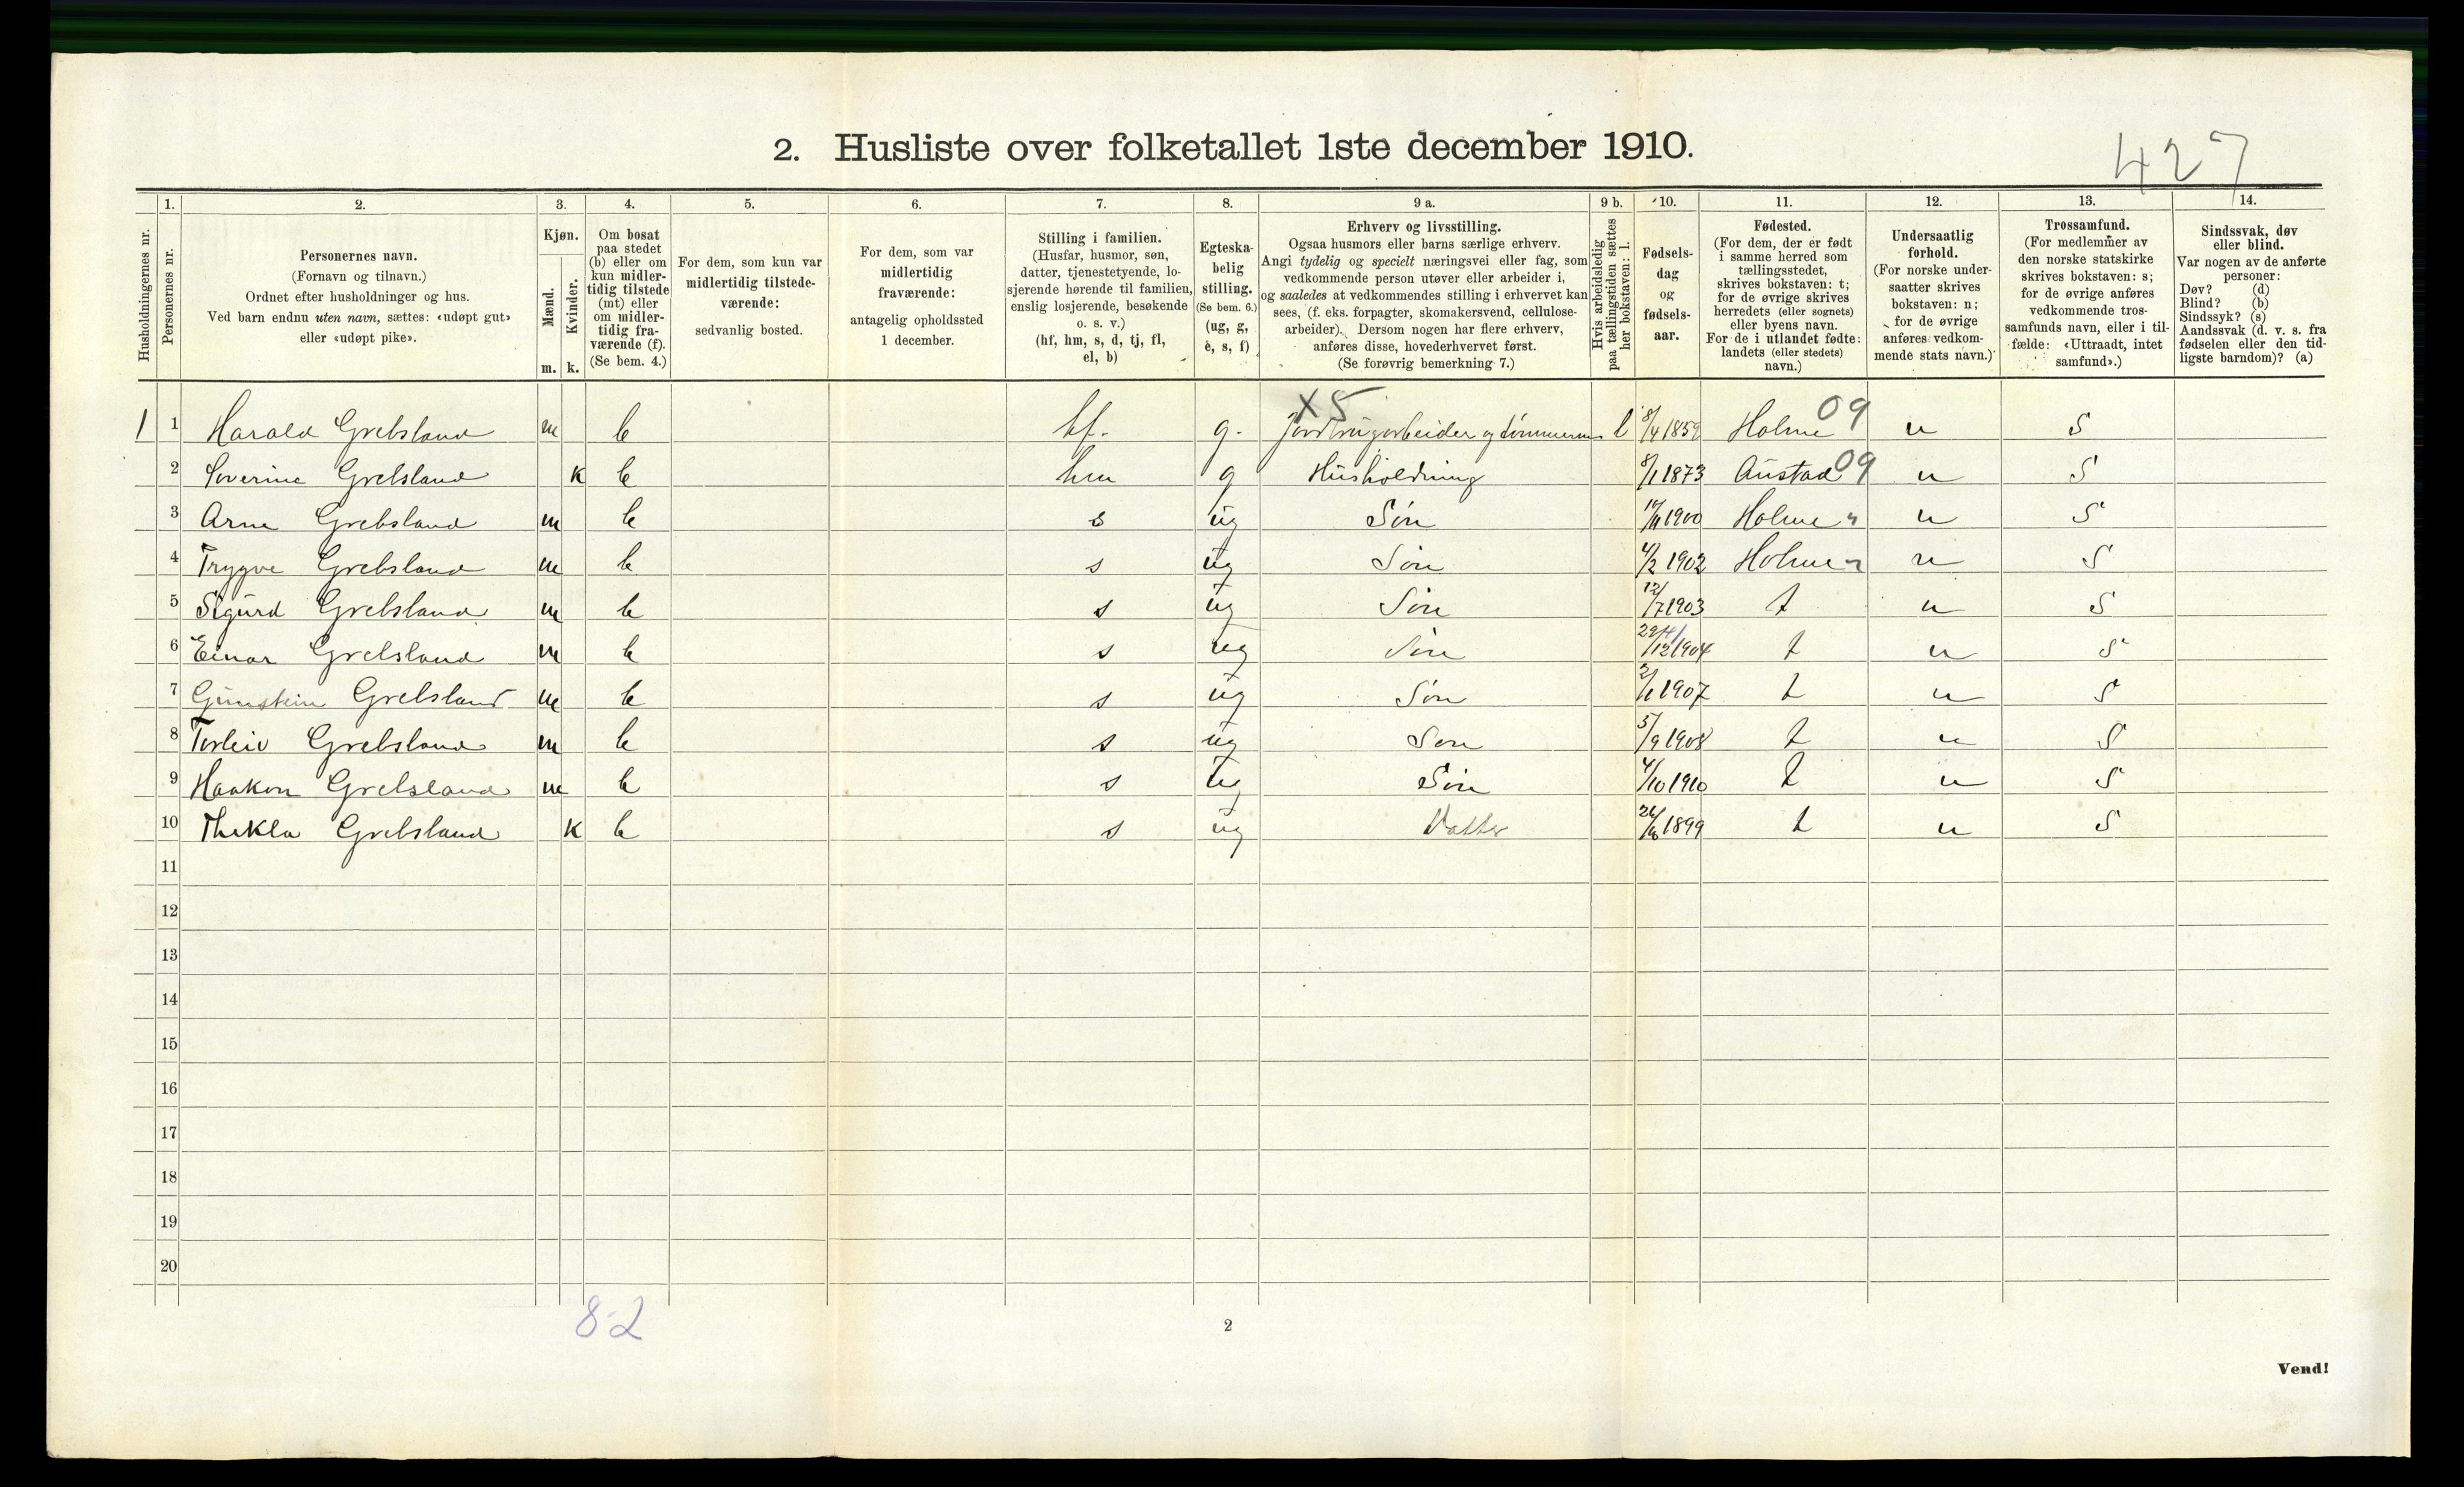 2. Husliste over folketallet 1ste december 1910.
427
1. 2. 3. 4. 5. 6. 7. 8. 9 a. 9 b. 10. 11. 12. 13. 14.
Husholdningernes nr.
Personernes nr.
Personernes navn.
(Fornavn og tilnavn.)
Ordnet efter husholdninger og hus.
Ved barn endnu uten navn, sættes: «udøpt gut»
eller «udøpt pike».
Kjøn.
Mænd.
Kvinder.
m. k.
Om bosat
paa stedet
(b) eller om
kun midler-
tidig tilstede
(mt) eller
om midler-
tidig fra-
værende (f).
(Se bem. 4.)
For dem, som kun var
midlertidig tilstede-
værende:
sedvanlig bosted.
For dem, som var
midlertidig
fraværende:
antagelig opholdssted
1 december.
Stilling i familien.
(Husfar, husmor, søn,
datter, tjenestetyende, lo-
sjerende hørende til familien,
enslig losjerende, besøkende
o. s. v.)
(hf, hm, s, d, tj, fl,
el, b)
Egteska-
belig
stilling.
(Se bem. 6.)
(ug, g,
e, s, f)
Erhverv og livsstilling.
Ogsaa husmors eller barns særlige erhverv.
Angi tydelig og specielt næringsvei eller fag, som
vedkommende person utøver eller arbeider i,
og saaledes at vedkommendes stilling i erhvervet kan
sees, (f. eks. forpagter, skomakersvend, cellulose-
arbeider). Dersom nogen har flere erhverv,
anføres disse, hovederhvervet først.
(Se forøvrig bemerkning 7.)
Hvis arbeidsledig
paa tællingstiden sættes
her bokstaven: l.
Fødsels-
dag
og
fødsels-
aar.
Fødested.
(For dem, der er født
i samme herred som
tællingsstedet,
skrives bokstaven: t;
for de øvrige skrives
herredets (eller sognets)
eller byens navn.
For de i utlandet fødte:
landets (eller stedets)
navn.)
Undersaatlig
forhold.
(For norske under-
saatter skrives
bokstaven: n;
for de øvrige
anføres vedkom-
mende stats navn.)
Trossamfund.
(For medlemmer av
den norske statskirke
skrives bokstaven: s;
for de øvrige anføres
vedkommende tros-
samfunds navn, eller i til-
fælde: «Uttraadt, intet
samfund».)
Sindssvak, døv
eller blind.
Var nogen av de anførte
personer:
Døv? (d)
Blind? (b)
Sindssyk? (s)
Aandssvak (d. v. s. fra
fødselen eller den tid-
ligste barndom)? (a)
X5 09
1 1 Harald Grebsland m b hf. g. Jordbrugarbeider og tømmerm l 8/4 1859 Holme n S
2 Severine Grebsland k b hm g Husholdning 8/1 1873 Austad 09 n S
3 Arne Grebsland m b s ug Søn 1900 Holme " n S
4 Trygve Grebsland m b s ug Søn 4/2 1902 Holme " n S
5 Sigurd Grebsland m b s ug Søn 12/7 1903 t n S
6 Einar Grebsland m b s ug Søn 29/12 1904 t n S
7 Gunstein Grebsland m b s ug Søn 2/1 1907 t n S
8 Torleiv Grebsland m b s ug Søn 5/9 1908 t n S
9 Haakon Grebsland m b s ug Søn 4/10 1910 t n S
10 Thekla Grebsland k b s ug Datter 1899 t n S
11
12
13
14
15
16
17
18
19
20
8-2
2
Vend!